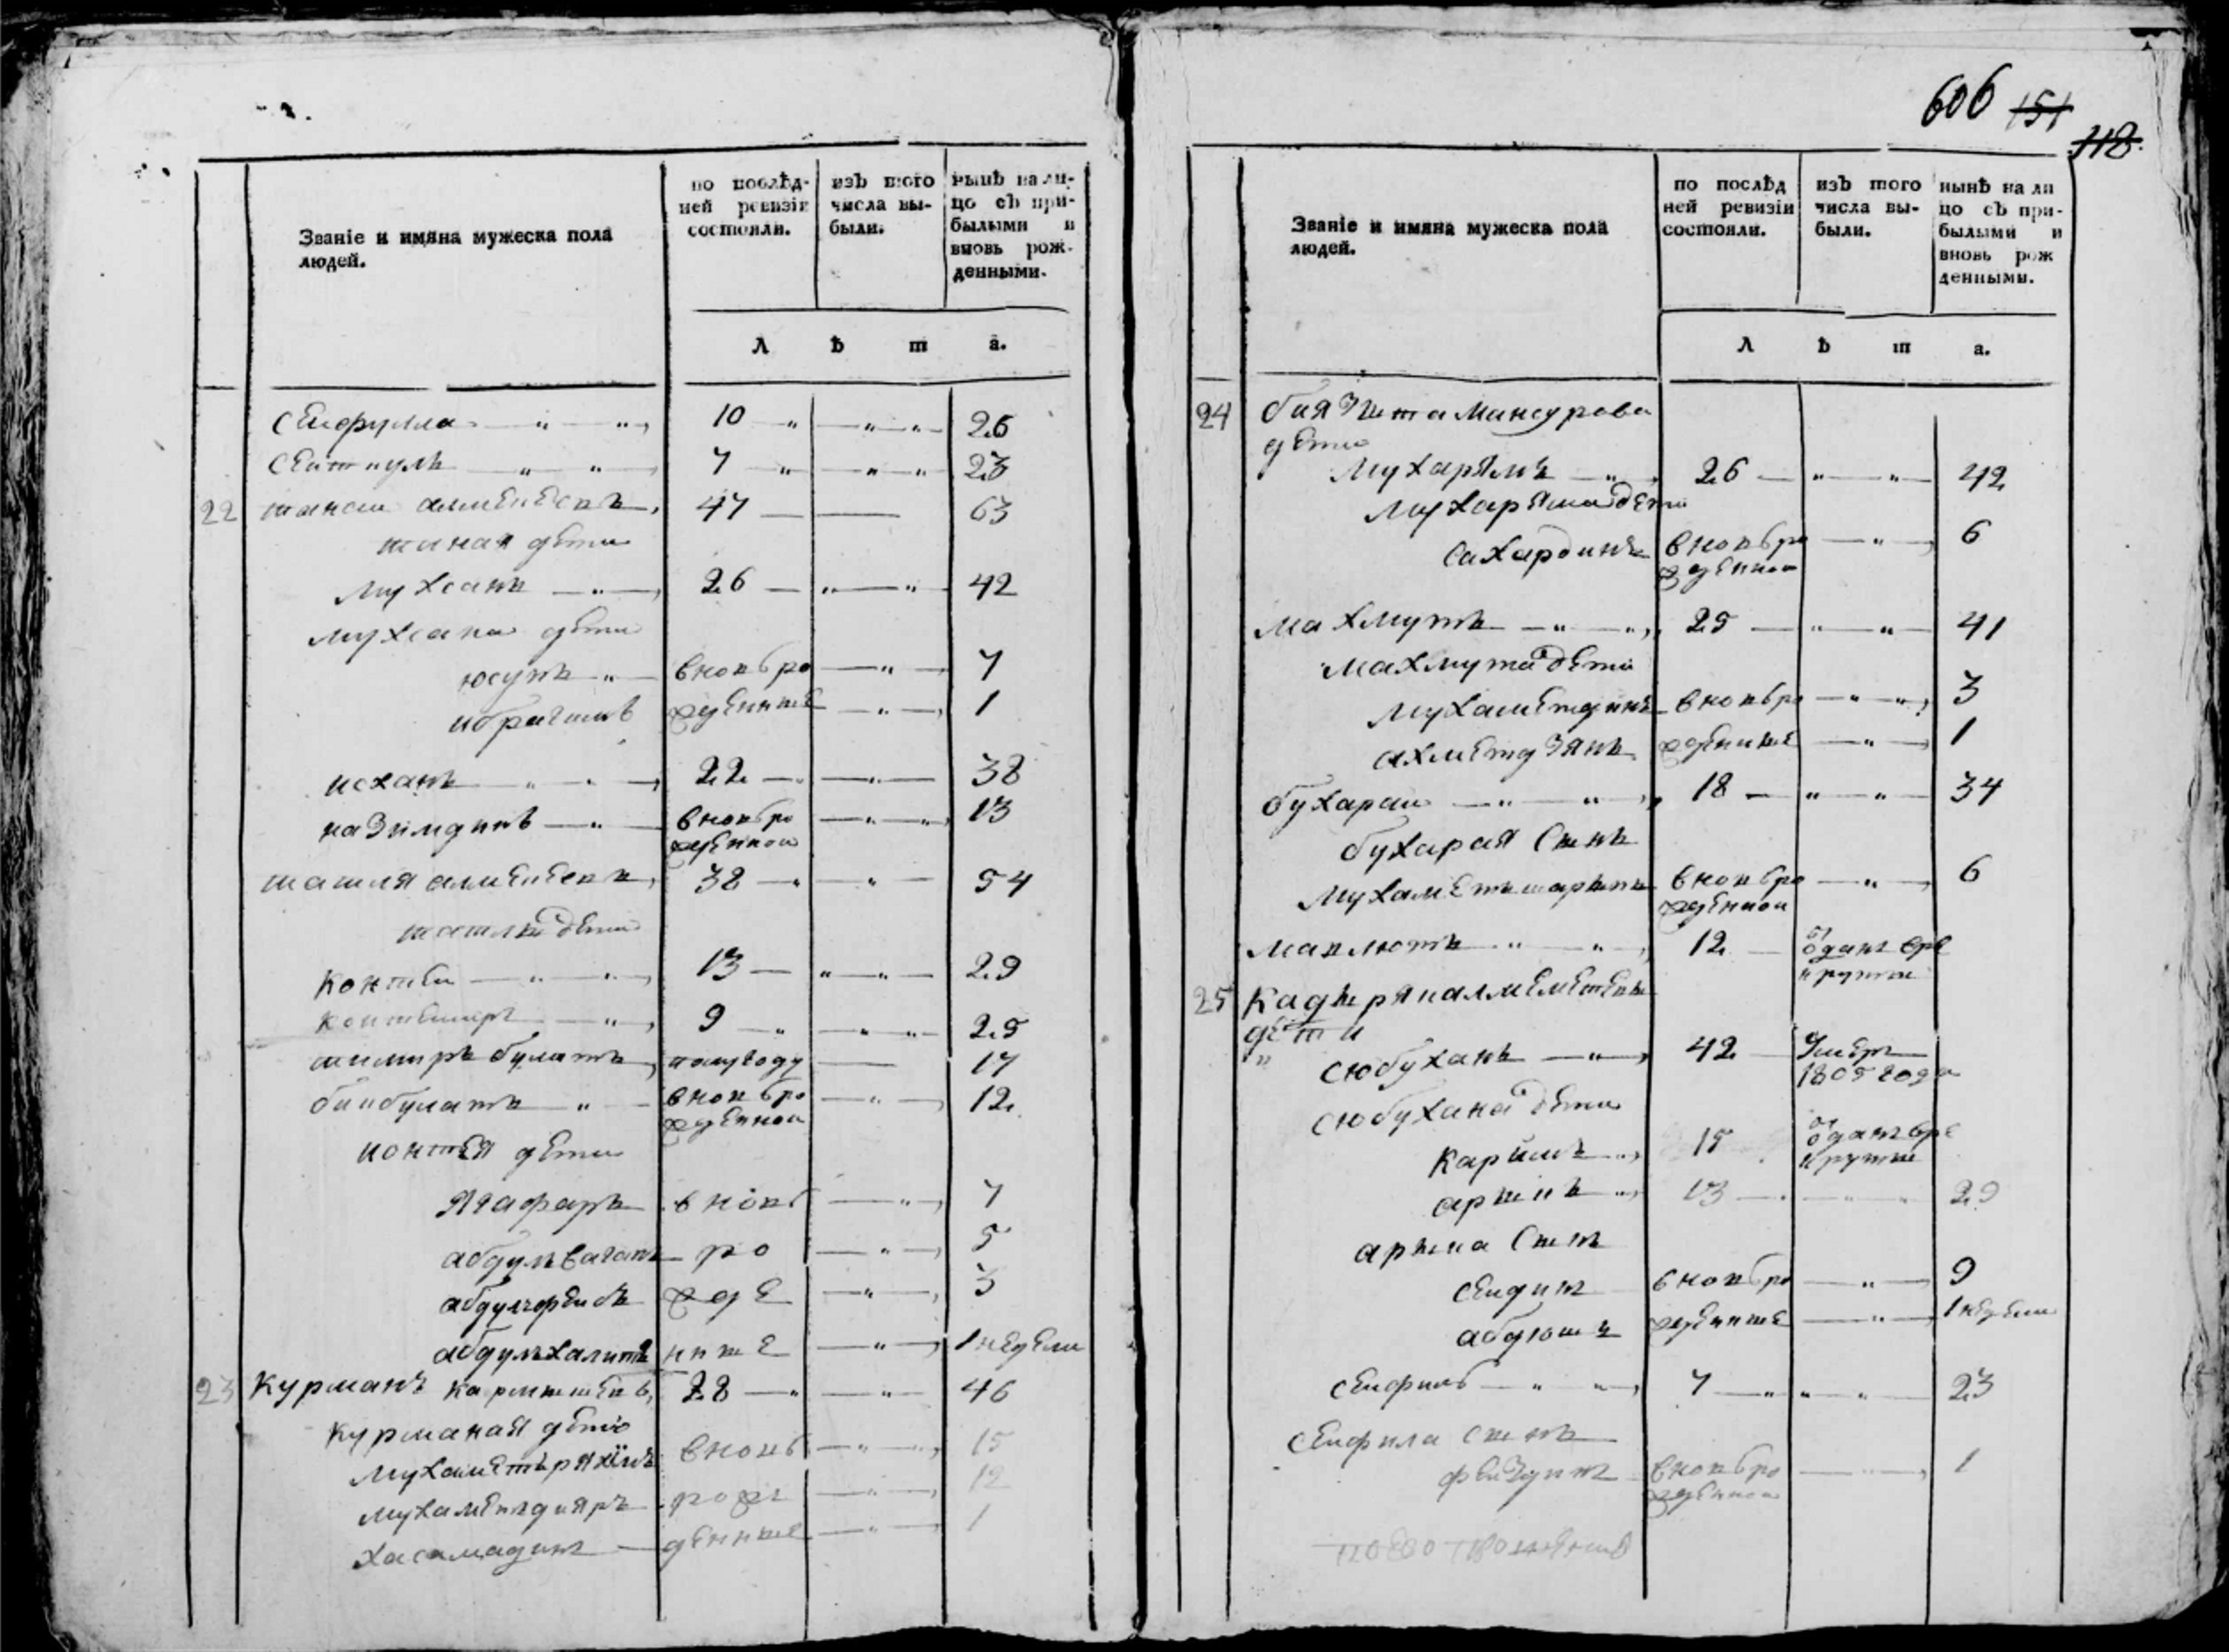 Званіе и имяна мужеска пола людей.
по послѣд-
ней ревизіи
состояли.
изъ того
числа вы-
были.
нынѣ на ли-
цо съ при-
былыми и
вновь рож-
денными.
Л ѣ т а.
сеифулла 10 26
сеиткулъ 7 23
22 47 63
дети
мухсанъ 26 42
мухсана дети
юсупъ вновьро 7
ибрагимъ жденные 1
исханъ 22 38
назимдинъ вновьро 13
жденнои
38 54
дети
контеи 13 29
контемиръ 9 25
тимиръ булатъ полугоду 17
биибулатъ вновьро 12
жденнои
контея дети
ягафаръ вновь 7
абдулвагапъ ро 5
абдулфеисъ жде 3
абдулхалитъ нные 1 недели
23 Курманъ 28 46
курманая дети
мухаметьряхимъ вновь 15
мухаметдияръ рож 12
хасамадинъ денные 1
606 151
118
Званіе и имяна мужеска пола людей.
по послѣд
ней ревизіи
состояли.
изъ того
числа вы-
были.
нынѣ на ли
цо съ при-
былыми и
вновь рож
денными.
Л ѣ т а.
24 биязита мансурова
дети
мухарямъ 26 42
мухаряма дети
сахардинъ вновьро 6
жденнои
махмутъ 25 41
махмута дети
мухаметдинъ вновьро 3
ахметдзянъ жденные 1
бухараи 18 34
бухарая сынъ
мухаметьшарыпъ вновьро 6
жденнои
мавлютъ 12 отданъ вре
круты
25
дети
сюбуханъ 42 умеръ
1805 года
сюбухана дети
каримъ 15 отданъ вре
круты
арыпъ 13 29
арыпа сынъ
сеидитъ вновьро 9
абдюшъ жденные 1 недели
сеифилъ 7 23
сеифила сынъ
феизулъ вновьро 1
жденнои